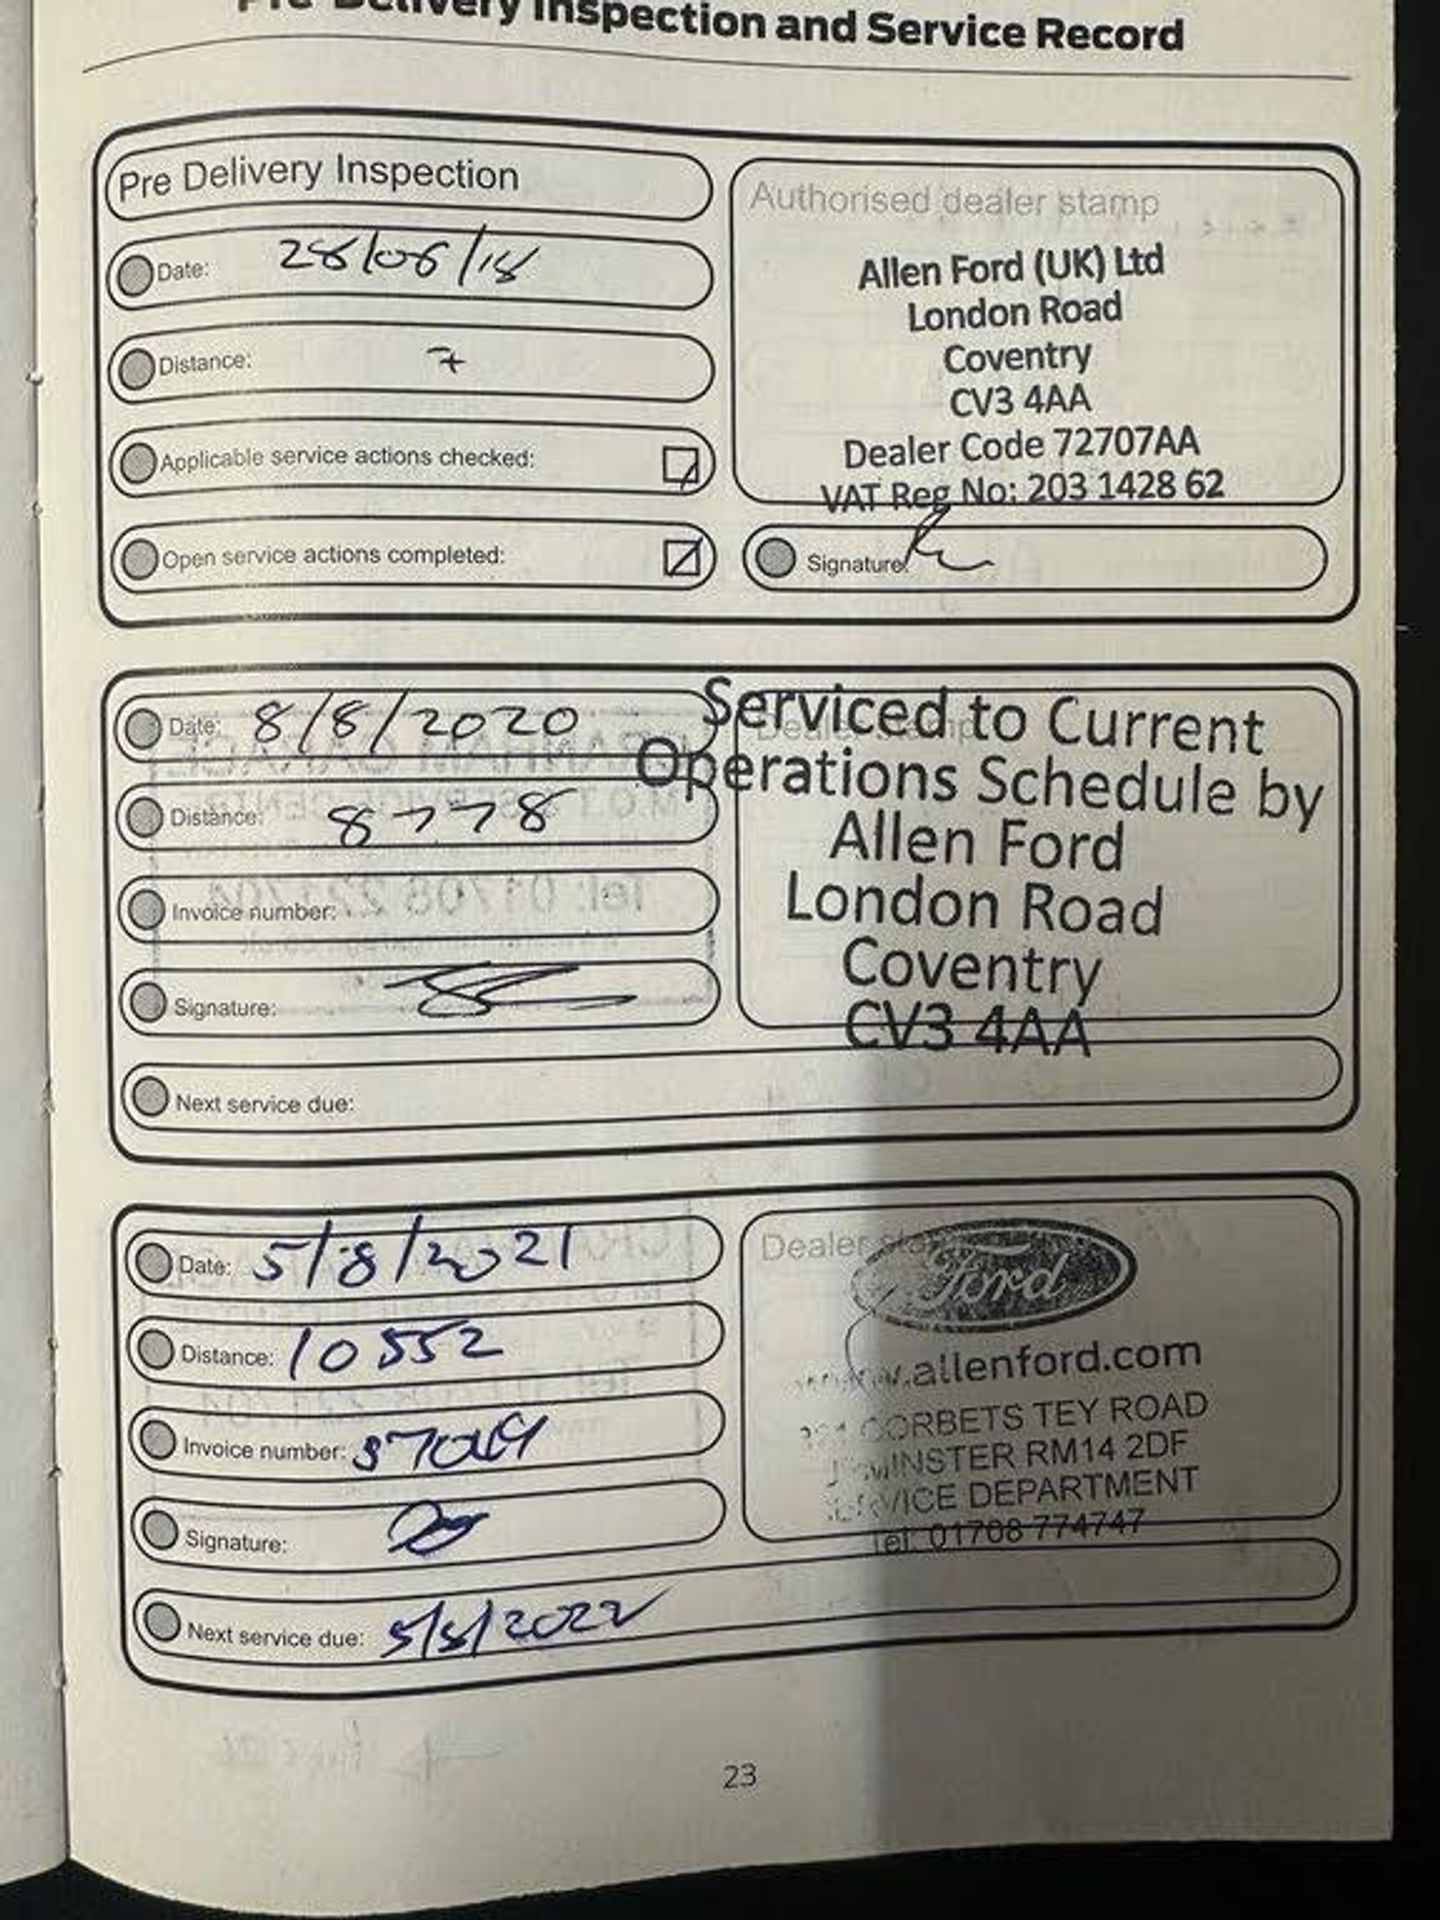 Pre Delivery Inspection and Service Record
Pre Delivery Inspection
Date: 28/06/18
Distance: 7
Applicable service actions checked:
Open service actions completed:
Authorised dealer stamp
Allen Ford (UK) Ltd
London Road
Coventry
CV3 4AA
Dealer Code 72707AA
VAT Reg No: 203 1428 62
Signature:
Date: 8/8/2020
Distance: 8778
Invoice number:
Signature:
Next service due:
Dealer stamp
Serviced to Current
Operations Schedule by
Allen Ford
London Road
Coventry
CV3 4AA
Date: 5/8/2021
Distance: 10552
Invoice number:
Signature:
Next service due: 5/8/2022
Dealer
Ford
www.allenford.com
CORBETS TEY ROAD
RM14 2DF
SERVICE DEPARTMENT
Tel: 01708 774747
23